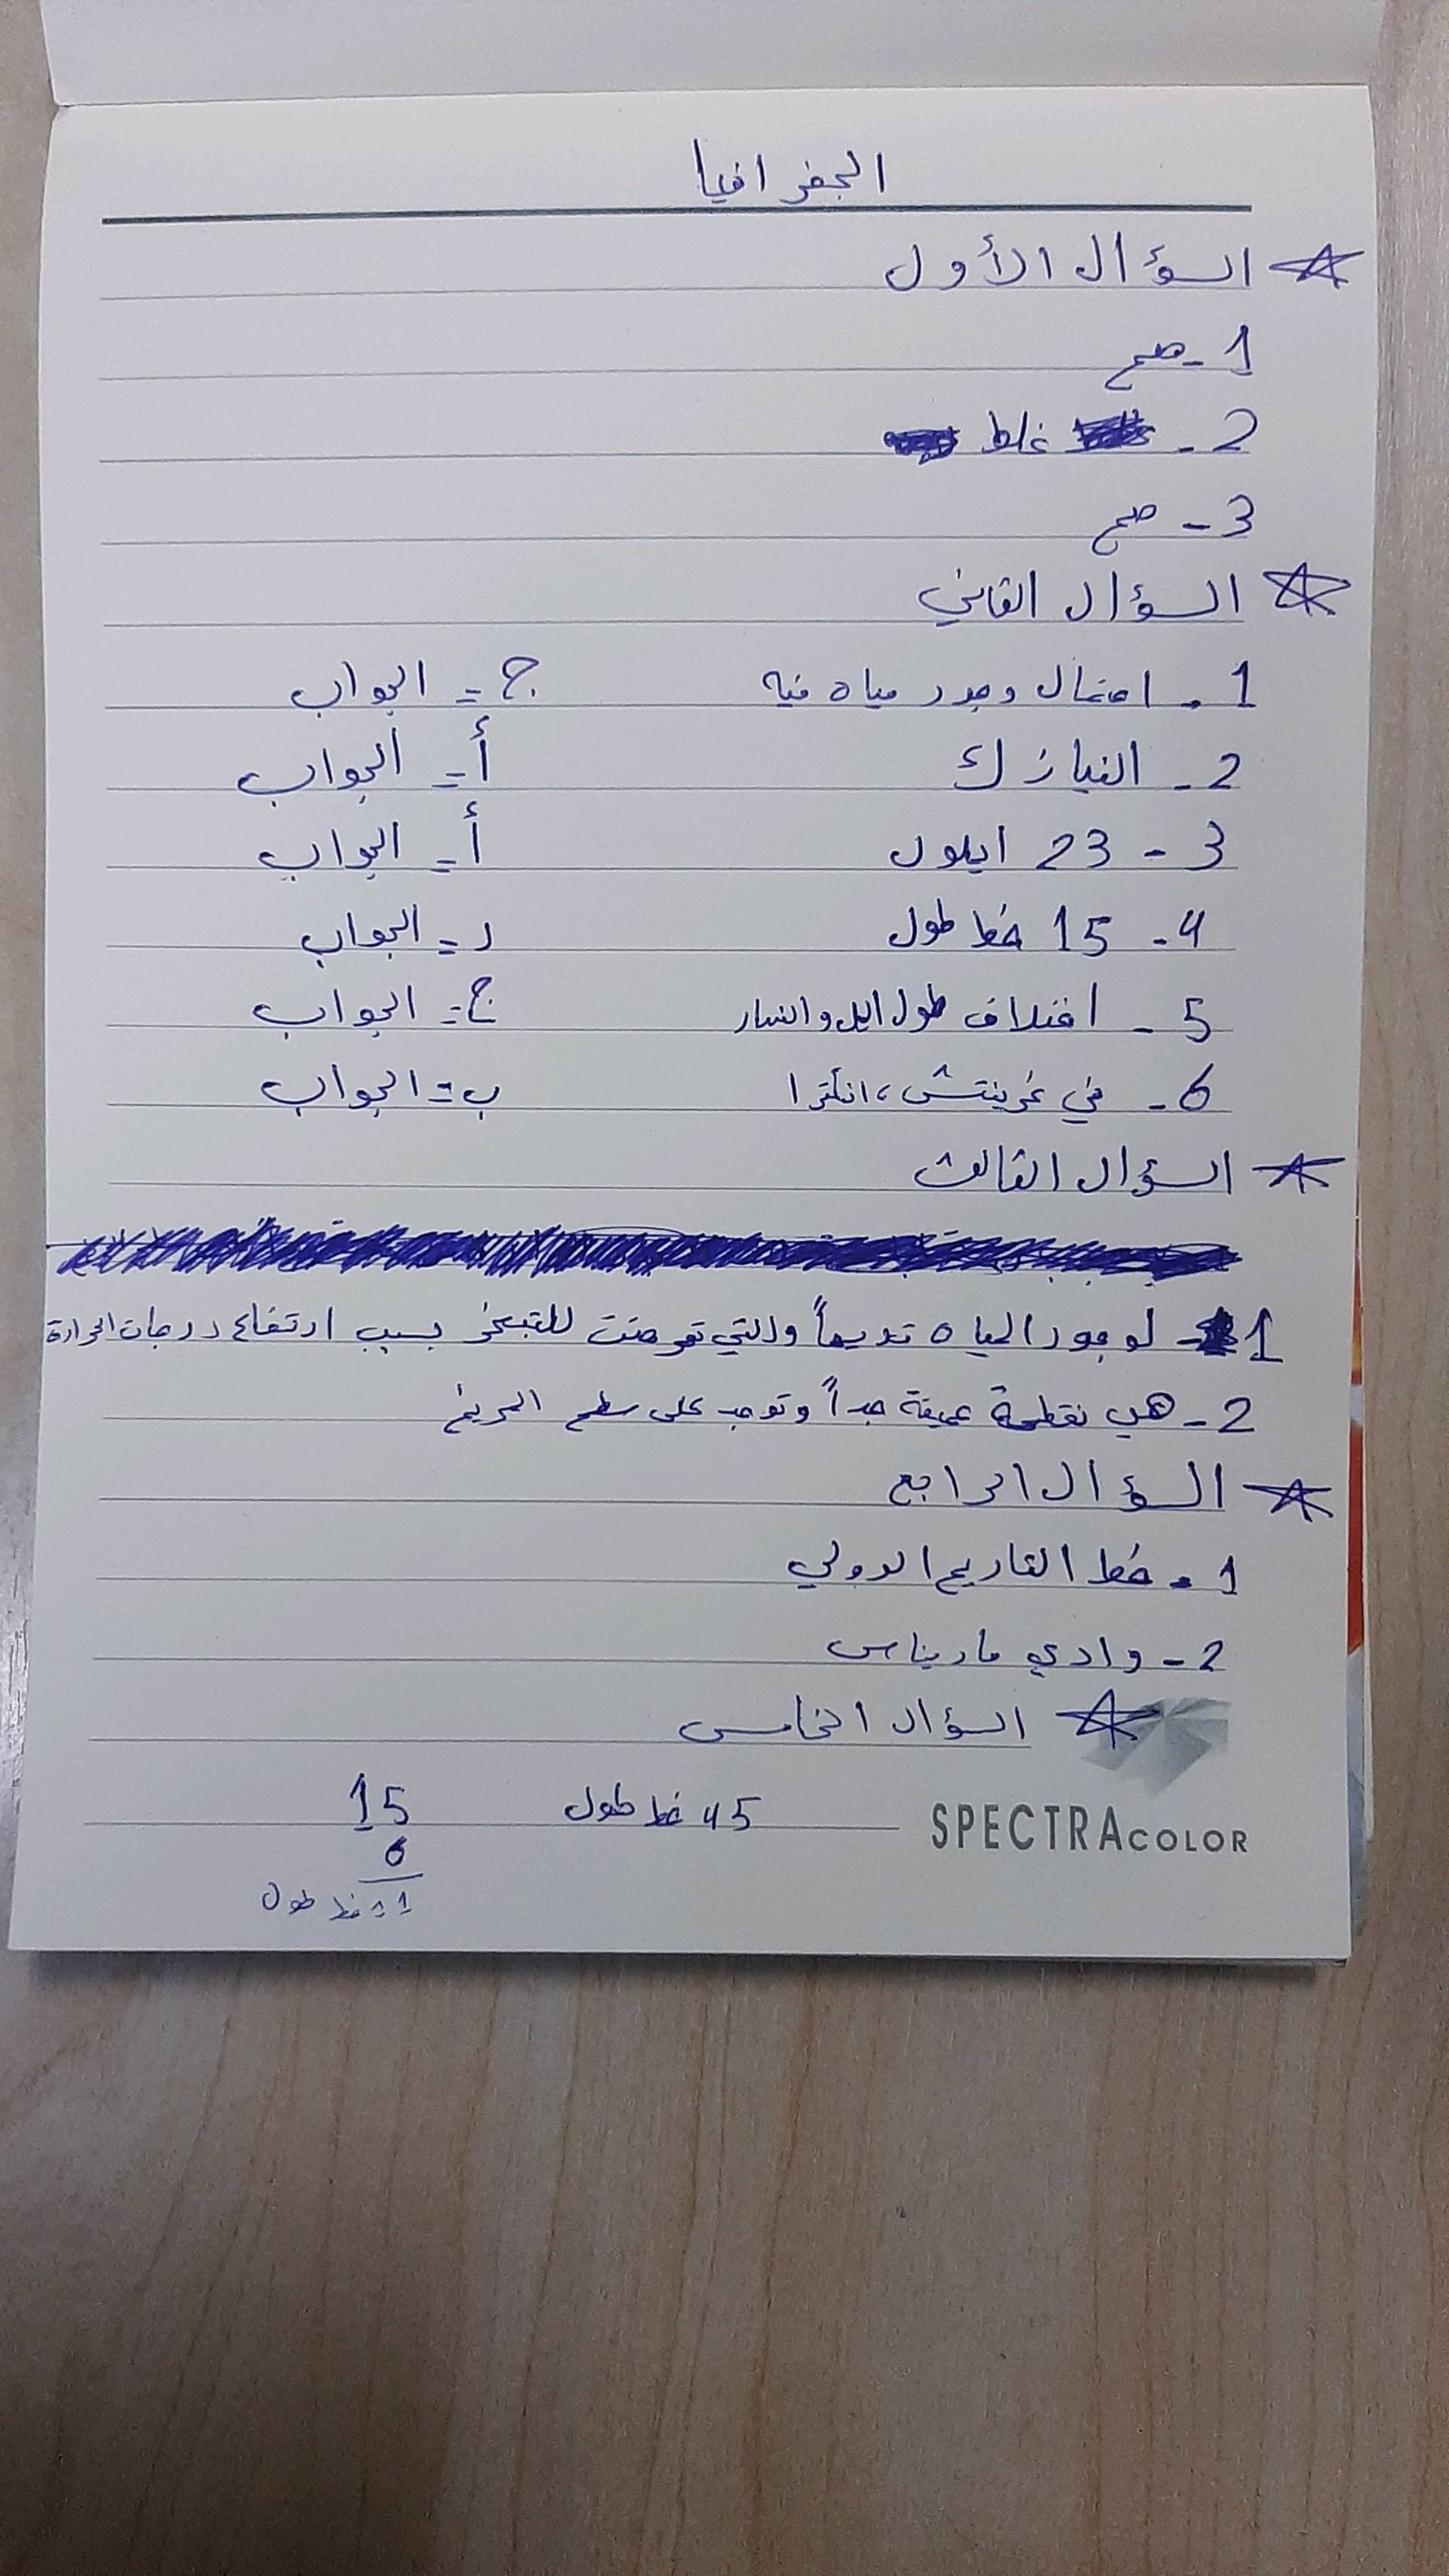 الجغرافيا
السؤال الأول
1 - صح
2 - غلط
3 - صح
السؤال الثاني
1 - احتمال وجود مياه فيه ج = الجواب
2 - النيازك أ = الجواب
3 - 23 ايلول أ = الجواب
4 - 15 خط طول د = الجواب
5 - اختلاف طول اليل والنهار ج = الجواب
6 - في غرينتش، انكترا ب = الجواب
السؤال الثالث
1 - لوجود المياه قديماً والتي تعرضت للتبخر بسبب ارتفاع درجات الحرارة
2 - هي نقطة عميقة جداً وتوجد على سطح المريخ
السؤال الرابع
1 - خط التاريخ الدولي
2 - وادي مارينس
السؤال الخامس
45 خط طول 15
SPECTRACOLOR
6
خط طول